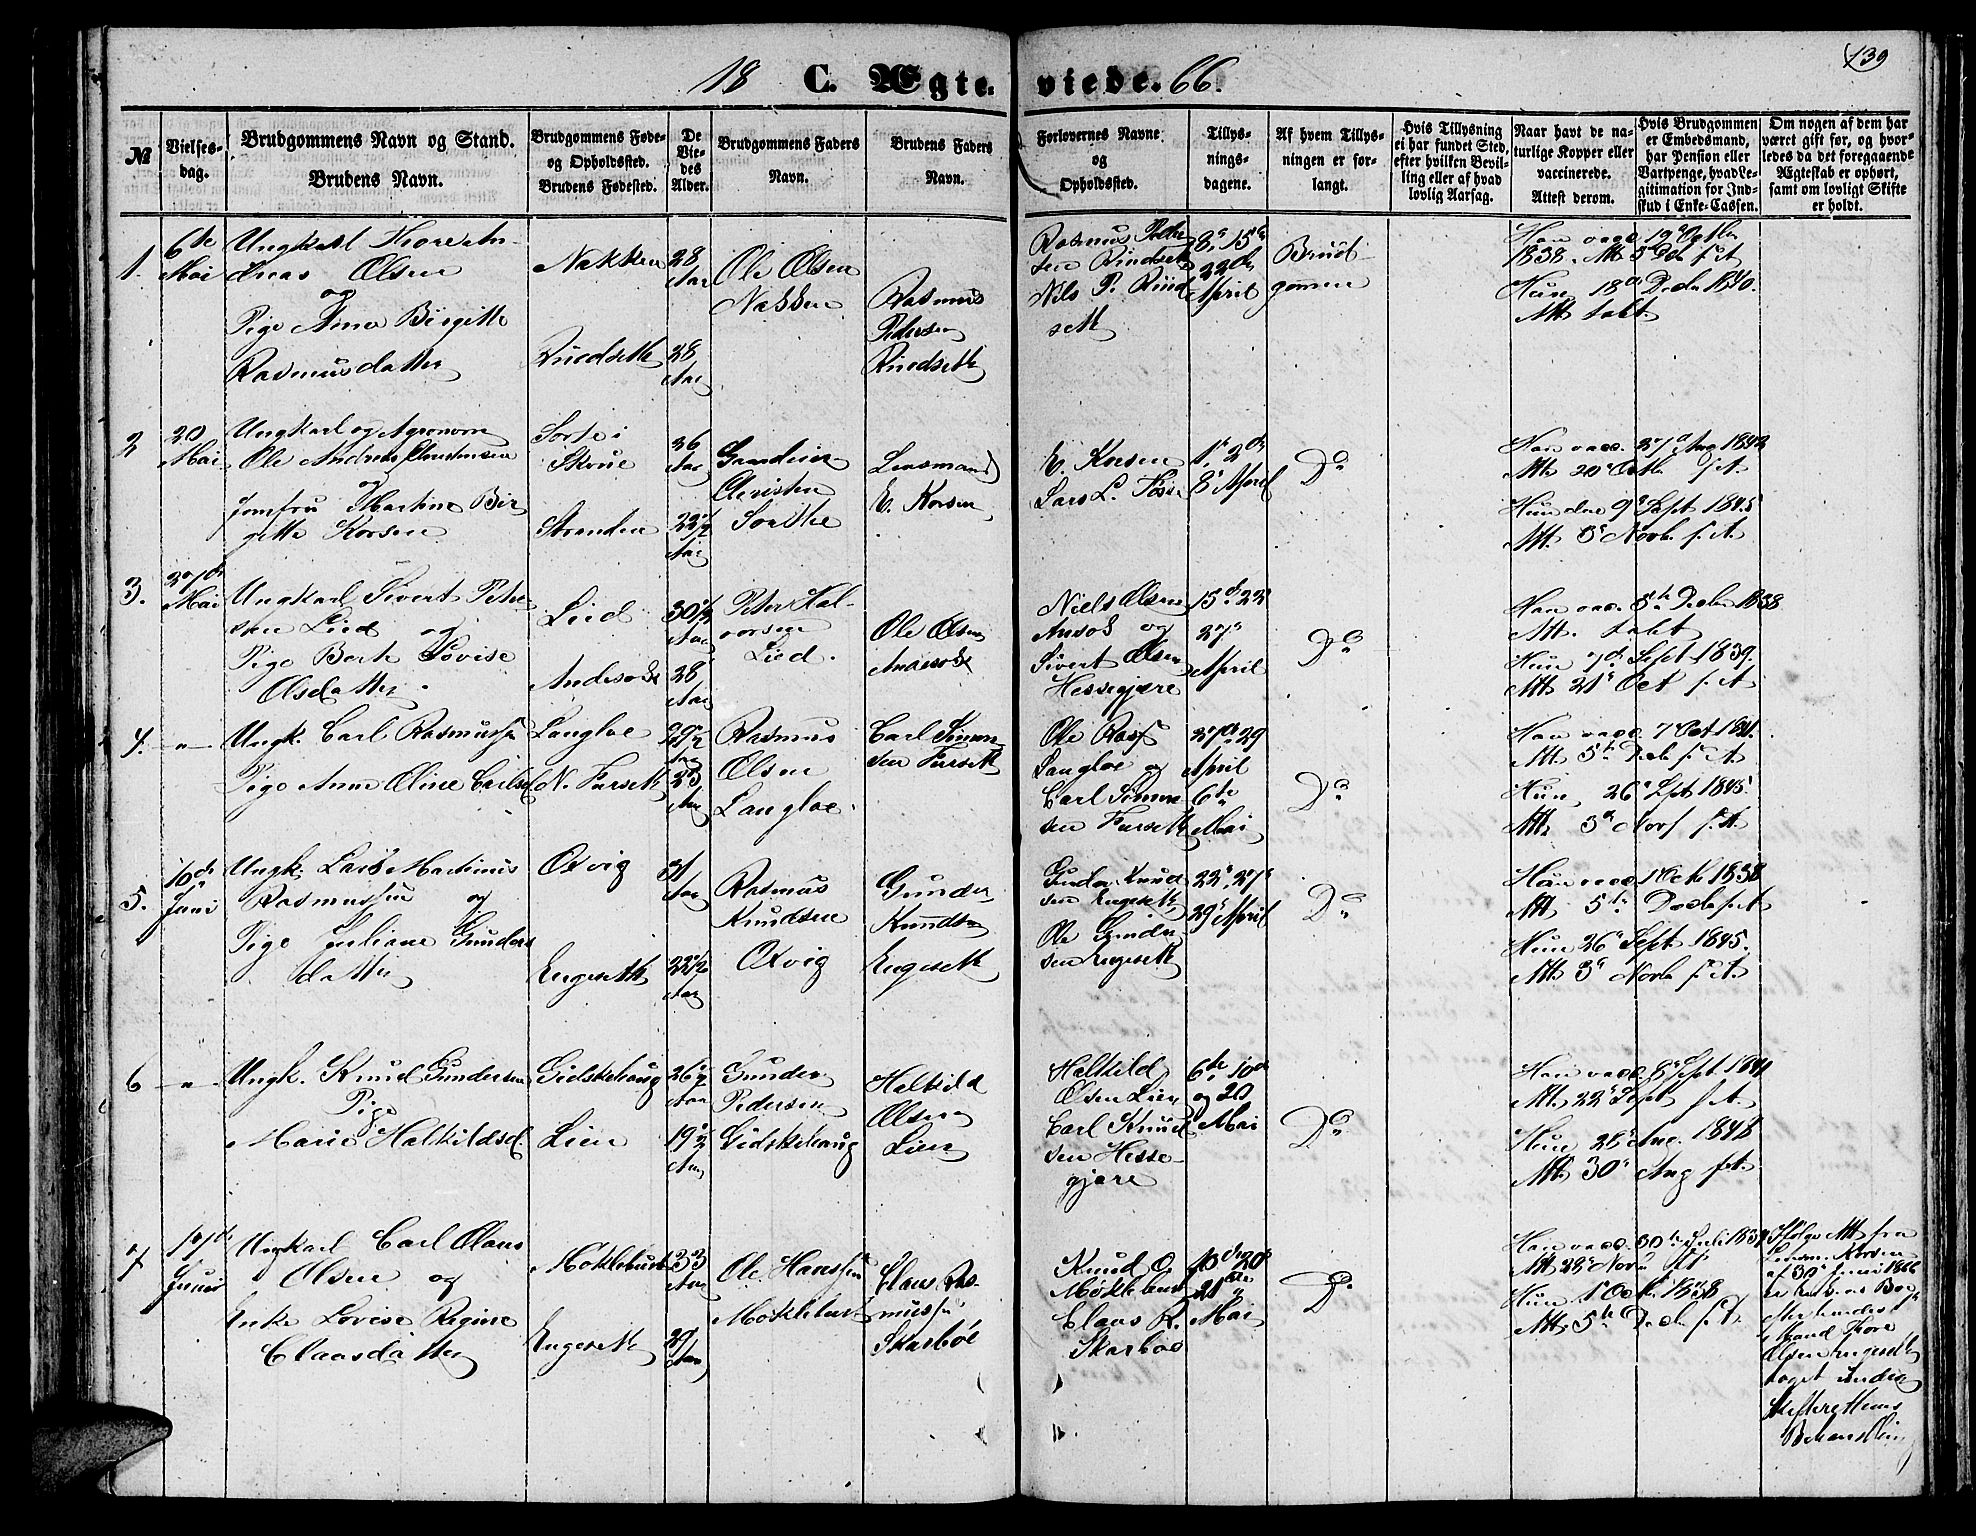 139
18 C. Ægte- viede. 66.
№
Vielses-
dag.
Brudgommens Navn og Stand.
Brudens Navn.
Brudgommens Føde-
og Opholdssted.
Brudens Fødested.
De
Vie-
des
Alder.
Brudgommens Faders
Navn.
Brudens Faders
Navn.
Forlovernes Navne
og
Opholdssted.
Tillys-
nings-
dagene.
Af hvem Tillys-
ningen er for-
langt.
Hvis Tillysning
ei har fundet Sted,
efter hvilken Bevil-
ling eller af hvad
lovlig Aarsag.
Naar havt de na-
turlige Kopper eller
vaccinerede.
Attest derom.
Hvis Brudgommen
er Embedsmand,
har Pension eller
Vartpenge, hvad Le-
gitimation for Ind-
skud i Enke-Cassen.
Om nogen af dem har
været gift før, og hvor-
ledes da det foregaaende
Ægteskab er ophørt,
samt om lovligt Skifte
er holdt.
1.
6te
Mai
Ungkarl Thore An-
dreas Olsen
og
Pige Anna Birgitte
Rasmusdatter
Nakken
Rindseth
28
Aar
28
Aar
Ole Olsen
Nakken
Rasmus
Pedersen
Rindseth
Rasmus Peder
sen Rindseth
Nils P. Rind
seth
8de 15de
22de
April
Brud-
gommen
Han vacc. 19de Octbr
1838. Att. 5 Deb s. A.
Hun 18de Decbr 1840.
Att. sakt.
2
20
Mai
Ungkarl og Agronom
Ole Andreas Christensen
og
Jomfru Martine Bir
gitte Korsen
i
Skoue
Stranden
36
Aar
22 1/2
Aar
Christen
Lensmand
E. Korsen
E. Korsen
Lars L. Fosse
1ste 2den
8de April
Do
Han vacc. 27de Aug 1842
Att. 20de Octbr s. A.
Hun den 9de Sept 1845
Att. 3de Novb. s. A.
3.
27de
Mai
Ungkarl Sivert Peter
sen Lied og
Pige Berthe Lovise
Olsdatter.
Lied
Andesok
30 1/2
Aar
28
Aar
Peter Hal-
vorsen
Lied.
Ole Olsen
Andesok
Niels Olsen
Ansok og
Sivert Olsen
Hessegjære
15de 22de
27de
April
Do
Han vacc. 5te Decbr 1838
Att. sakt
Hun 7de Sept 1839.
Att. 21de Oct s. A.
4.
"
Ungk. Carl Rasmussen
Pige Anne Oline Carlsd.
Langloe
N. Furseth
29 1/2
Aar
23
Aar
Rasmus
Olsen
Langloe.
Carl Simon
sen Furseth
Ole Rass
Langloe og
Carl Simon
sen Furseth
27de 29
April
6te
Mai
Do
Han vacc. 7 Oct 1841.
Att. 5te Decb s. A.
Hun, 26de Sept 1845
Att. 3de Nov s. A.
5.
10de
Juni
Ungk. Lars Martinus
Rasmussen og
Pige Juliane Gunders
datter
Oxvig
Engeseth
31
Aar
22 1/2
Aar
Rasmus
Knudsen
Oxvig
Gunder
Knudsen
Engeseth
Gunder Knud
sen Engeseth,
Ole Gunder
sen Engeseth
22de 27de
29de April
Do
Han vacc. 1 Octb. 1838
Att. 5te Decb s. A.
Hun 26de Sept 1845.
Att. 3de Novb s. A.
6
"
Ungk. Knud Gundersen
Pige
Marie Halkildsd.
Gidskehaug
Lien
26 1/2
Aar
19 1/2
Aar
Gunder
Pedersen
Gidskehaug
Halkild
Olsen
Lien
Halkild
Olsen Lien
Carl Knud
sen Hesse-
gjære
6te 10de
og 20
Mai
Do
Han vacc. 8de Sept 1841
Att. 22de Sept s. A.
Hun 28de Aug. 1848
Att. 30te Aug s. A.
7
17de
Juni
Ungkarl Carl Olaus
Olsen og
Enke Lovise Regine
Claasdatter
Moklebust
Engeseth
33
Aar
27
Aar
Ole Hanssen
Moklebust
Claus Ras-
mussen
Skarbøe
Knud O.
Møklebust
Claus R.
Skarbøe
10de 20de
21de
Mai
Do
Han vacc. 30te Juli 1834
Att. 28de Nov s. A.
Hun 1 Oct. 1838
Att. 5te Decb s. A.
Ifølge Att fra
Lensm. Korsen
af 30te Juni 1866
er hendes Boe
efter hendes f.
Mand Thore
Olsen Engeseth
taget under
Skifterettens
Behandling